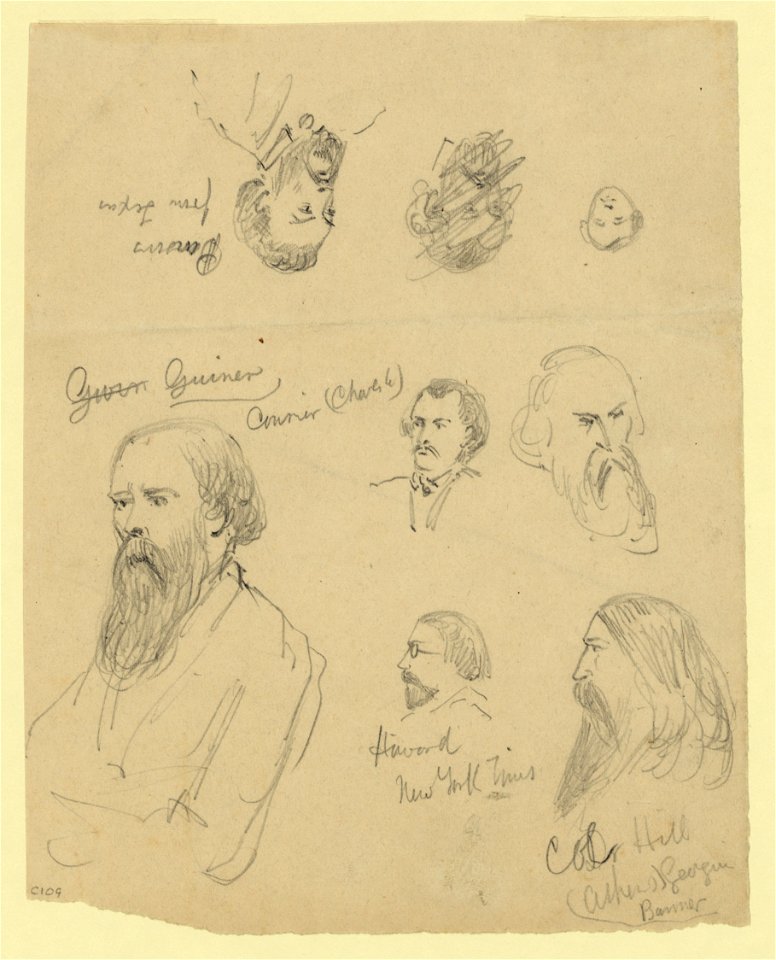 from Texas
Gwin Guiner
Courier (Charls
Howard
New York Times
Col Hill
(Athens) Georgia
Banner
C109